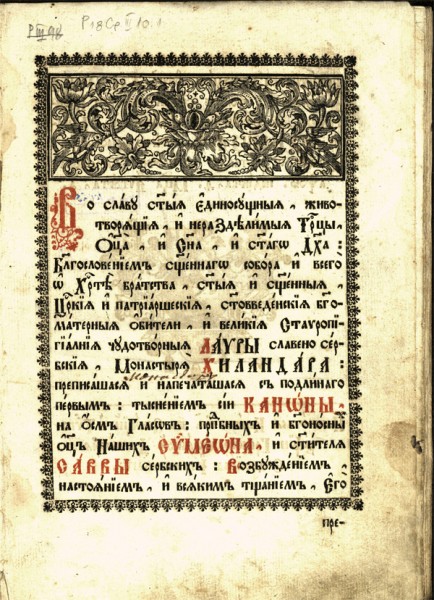 Р 18 Ср II 10.1
Во славу ст҃ыѧ Єдиносꙋщныѧ, живо-
творѧщїѧ, и нераздѣлимыѧ Трⷪ҇цы,
Оц҃а, и Сн҃а, и ст҃агѡ Дх҃а:
Бл҃гословенїемъ сщ҃еннагѡ собора и всегѡ
ѡ Хрⷭ҇тѣ братства, ст҃ыѧ и сщ҃енныѧ,
Цр҃кїѧ и патрїаршескїѧ, ст҃овведенскїѧ бг҃о-
матерныѧ ѻбители, и великїѧ Стауропі-
гїалнїѧ чꙋдотворныѧ ЛАѴРЫ славено сер-
бскїѧ, Монастырѧ ХИЛАНДАРА:
преписашасѧ и напечаташасѧ съ подлинаго
первымъ: тыснѣнїемъ сїи КАНѠНЫ,
на ѻсмъ Гласѡвъ: прпⷣбныхъ и бг҃оносны
ѻц҃ъ Нашихъ, СѴМЕѠНА, и ст҃ителѧ
САВВЫ сербскихъ: Возбꙋжденїемъ,
настоѧнїемъ, и всѧкимъ тщанїемъ, Єгѡ
пре-